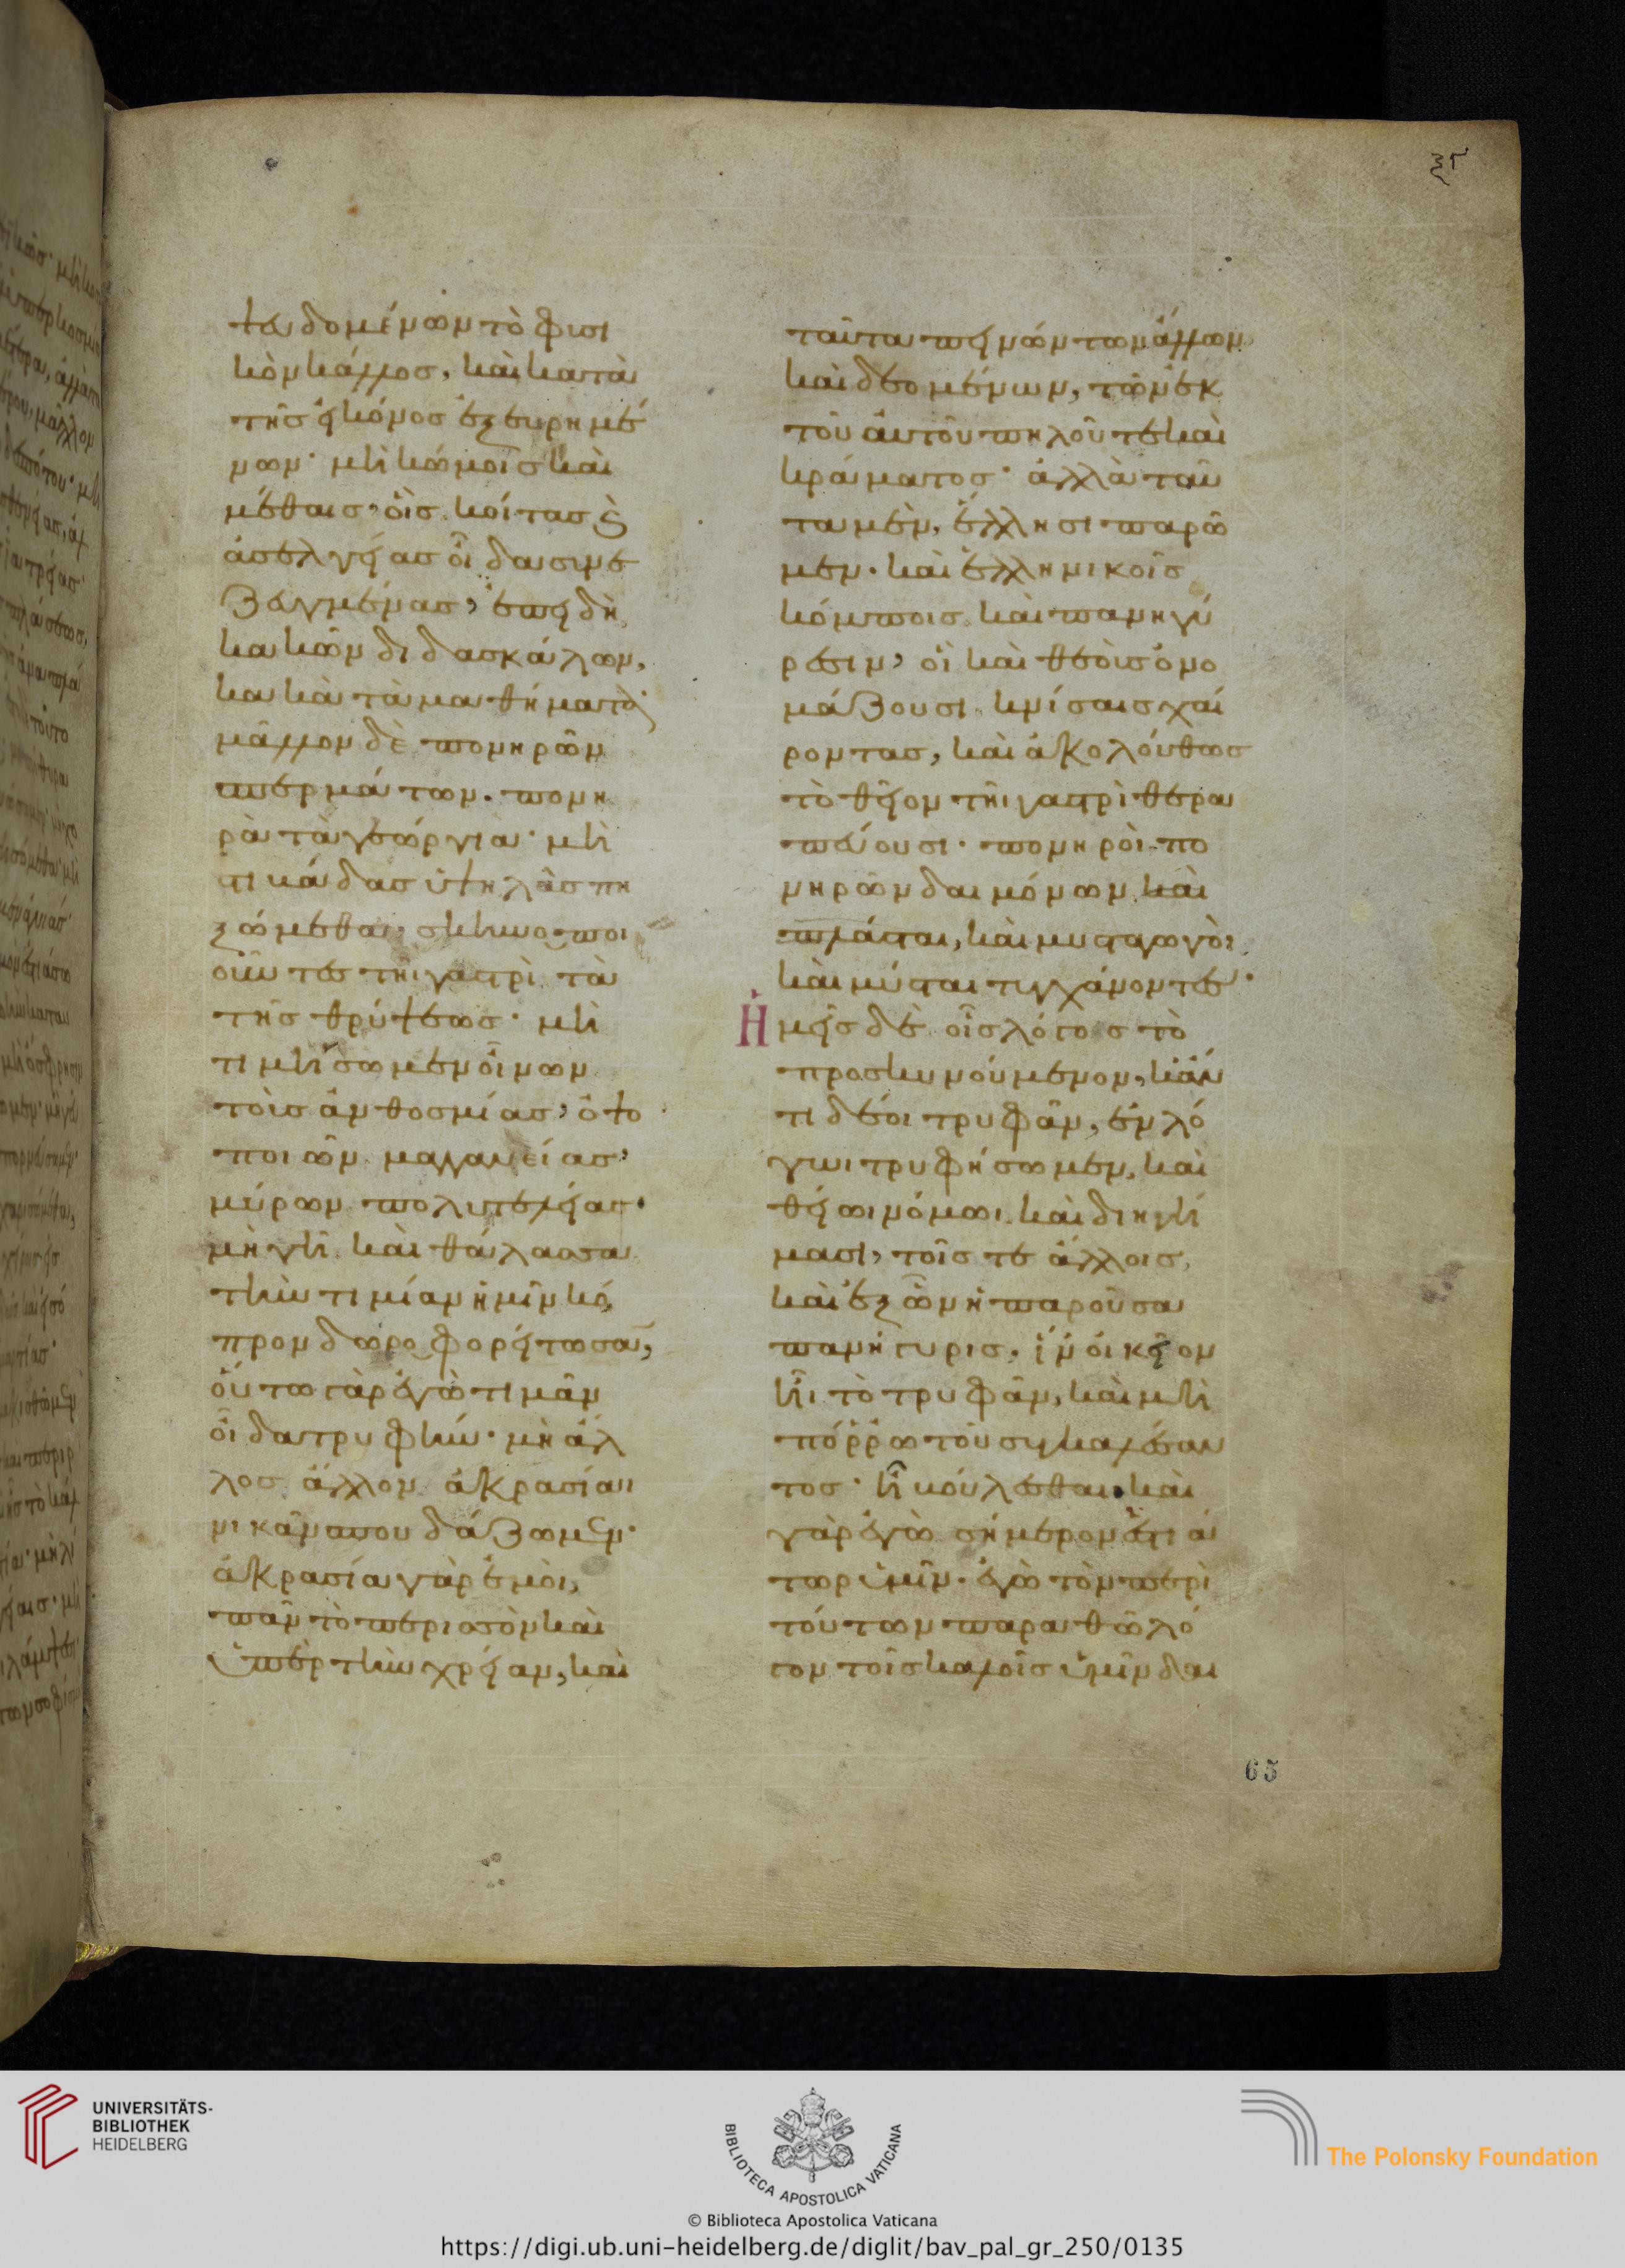 ψευδομένων τὸ φυσι
κὸν κάλλος, καὶ κατὰ
τῆς εἰκόνος ἐξευρημέ
νων· μὴ κώμοις καὶ
μέθαις, οἷς κοίτας ϗ
ἀσελγείας οἶδα συνε
ζευγμένας, ἐπειδὴ
κακῶν διδασκάλων,
κακὰ τὰ μαθήματα·
μᾶλλον δὲ πονηρῶν
σπερμάτων. πονη
ρὰ τὰ γεώργια· μὴ
στιβάδας ὑψηλὰς πη
ξώμεθα, σκηνοποι
οῦντες τῆι γαστρὶ τὰ
τῆς θρύψεως· μὴ
τιμήσωμεν οἴνων
τοὺς ἀνθοσμίας, ὀψο
ποιῶν μαγγανείας,
μύρων πολυτελείας·
μὴ γῆ καὶ θάλασσα
τὴν τιμίαν ἡμῖν κό
προν δωροφορείτωσαν,
οὕτω γὰρ ἐγὼ τιμᾶν
οἶδα τρυφήν· μὴ ἄλ
λος ἄλλον ἀκρασίαι
νικᾶν σπουδάζωμεν·
ἀκρασία γὰρ ἐμοὶ,
πᾶν τὸ περισσὸν καὶ
ὑπὲρ τὴν χρείαν, καὶ
ταῦτα πεινώντων ἄλλων
καὶ δεομένων, τῶν ἐκ
τοῦ αὐτοῦ πηλοῦ τε καὶ
κράματος· ἀλλὰ ταῦ
τα μὲν, ἕλλησι παρῶ
μεν· καὶ ἑλληνικοῖς
κόμποις καὶ πανηγύ
ρεσιν, οἳ καὶ θεοὺς ὀνο
μάζουσι κνίσαις χαί
ροντας, καὶ ἀκολούθως
τὸ θεῖον τῆι γαστρὶ θερα
πεύουσι· πονηροὶ πο
νηρῶν δαιμόνων καὶ
πλάσται, καὶ μυσταγωγοὶ
καὶ μύσται τυγχάνοντες·
Ἡμεῖς δὲ οἷς λόγος τὸ
προσκυνούμενον, κἄν
τι δέοι τρυφᾶν, ἐν λό
γωι τρυφήσωμεν, καὶ
θείωι νόμωι καὶ διηγή
μασι, τοῖς τε ἄλλοις,
καὶ ἐξ ὧν ἡ παροῦσα
πανήγυρις. ἵν' οἰκεῖον
ἦι τὸ τρυφᾶν, καὶ μὴ
πόρρω τοῦ συγκαλέσαν
τος· ἢ βούλεσθαι· καὶ
γὰρ ἐγὼ σήμερον ἑστιά
τωρ ὑμῖν. ἐγὼ τὸν περὶ
τούτων παραθῶ λό
γον τοῖς καλοῖς ὑμῖν δαι
65
UNIVERSITÄTS-
BIBLIOTHEK
HEIDELBERG
BIBLIOTECA APOSTOLICA VATICANA
The Polonsky Foundation
© Biblioteca Apostolica Vaticana
https://digi.ub.uni-heidelberg.de/diglit/bav_pal_gr_250/0135